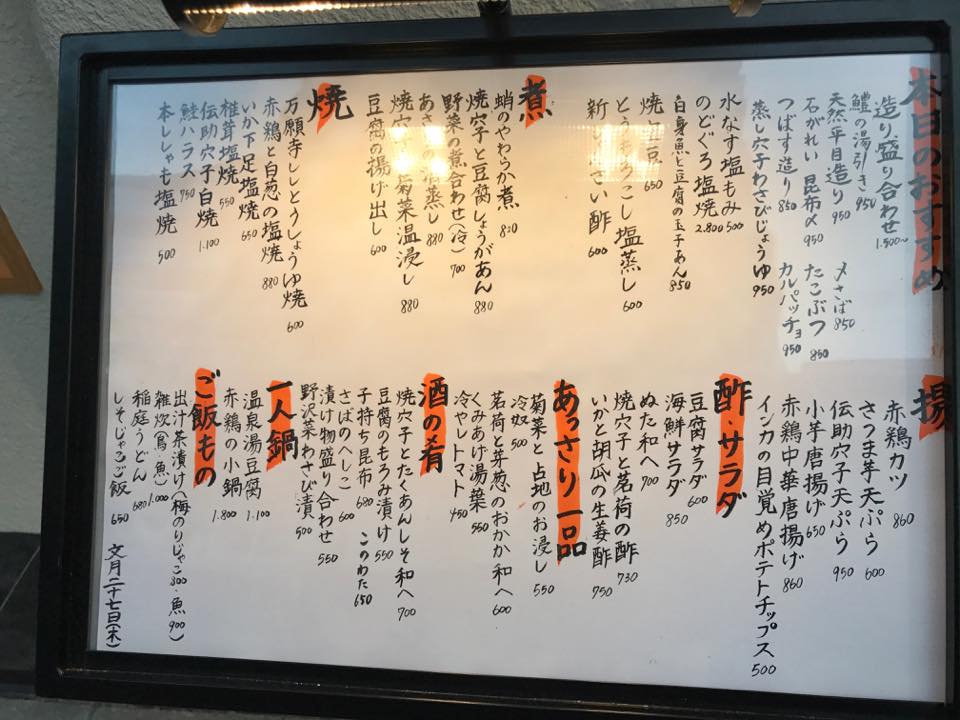 本日のおすすめ
造り盛り合わせ 1.500〜
鱧の湯引き 950
天然平目造り 950
〆さば 850
石がれい昆布〆 950
たこぶつ 850
つばす造り 850
カルパッチョ 950
蒸し穴子わさびじょうゆ 950
水なす塩もみ 500
のどぐろ塩焼 2.800
白身魚と豆腐の玉子あん 850
焼 豆 650
とうもろこし塩蒸し 600
新 さい酢 600
煮
蛸のやわらか煮 820
焼穴子と豆腐しょうがあん 880
野菜の煮合わせ(冷) 700
あさ の酒蒸し 880
焼穴 菊菜温浸し 880
豆腐の揚げ出し 600
焼
万願寺ししとうしょうゆ焼 600
赤鶏と白葱の塩焼 880
いか下足塩焼 650
椎茸塩焼 550
伝助穴子白焼 1.100
鮭ハラス 750
本ししゃも塩焼 500
揚
赤鶏カツ 860
さつま芋天ぷら 600
伝助穴子天ぷら 950
小芋唐揚げ 650
赤鶏中華唐揚げ 860
インカの目覚めポテトチップス 500
酢・サラダ
豆腐サラダ 600
海鮮サラダ 850
ぬた和へ 700
焼穴子と茗荷の酢 730
いかと胡瓜の生姜酢 750
あっさり一品
菊菜と占地のお浸し 550
冷奴 500
茗荷と芽葱のおかか和へ 600
くみあげ湯葉 550
冷やしトマト 450
酒の肴
焼穴子とたくあんしそ和へ 700
豆腐のもろみ漬け 550
子持ち昆布 680
このわた 650
さばのへしこ 600
漬け物盛り合わせ 550
野沢菜わさび漬 500
一人鍋
温泉湯豆腐 1.100
赤鶏の小鍋 1.800
ご飯もの
出汁茶漬け(梅のりじゃこ800・魚900)
雑炊(鳥・魚) 1.000
稲庭うどん 680
しそじゃこご飯 650
文月二十七日(木)